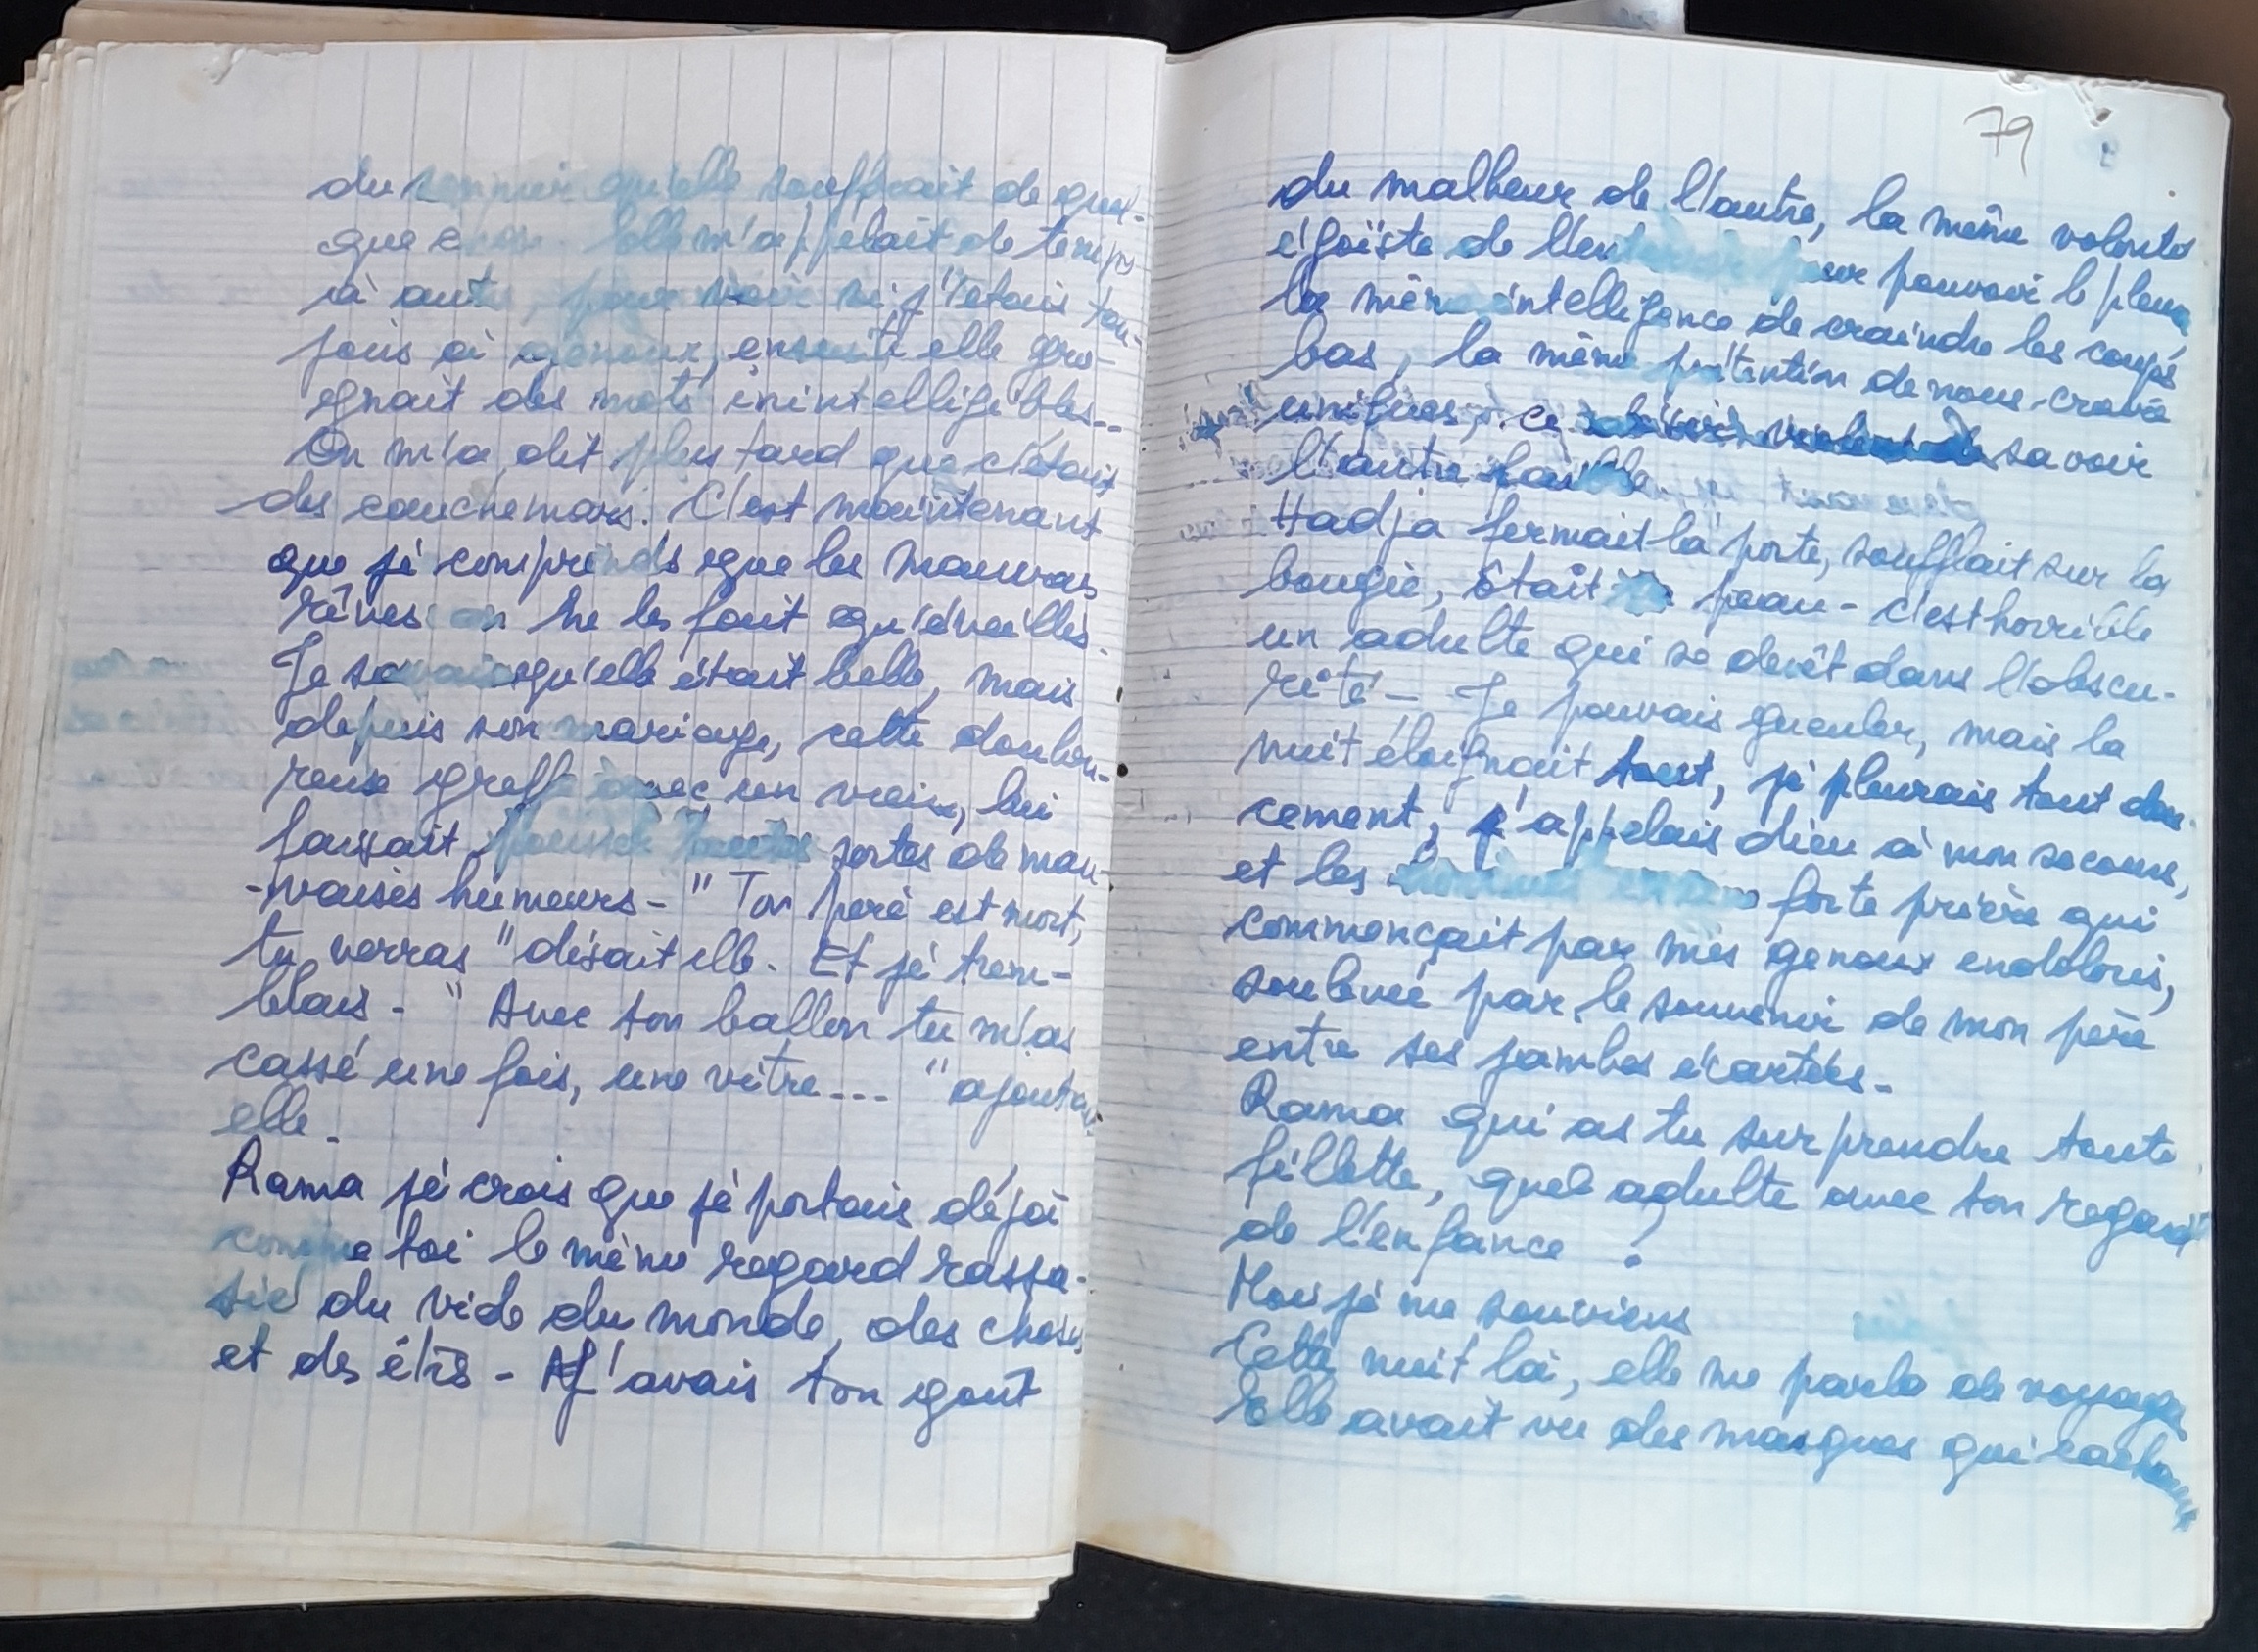 du sommeil qu'elle souffrait de quel-
que chose. Elle m'appelait de temps
à autre, pour voir si j'étais tou-
jours à genoux, ensuite elle gro-
gnait des mots inintelligibles...
On m'a dit plus tard que c'était
des cauchemars. C'est maintenant
que je comprends que les mauvais
rêves on ne les fait qu'éveillés.
Je savais qu'elle était belle, mais
depuis son mariage, cette doulou-
reuse greffe avec un vieux, lui
faisait pousser toutes sortes de mau-
-vaises humeurs - " Ton père est mort,
tu verras " disait elle. Et je trem-
blais - " Avec ton ballon tu m'as
cassé une fois, une vitre... " ajoutait
elle.
Rama je crois que je portais déjà
comme toi le même regard rassa-
sié du vide du monde, des choses
et des êtres - J'avais ton goût
79
du malheur de l'autre, la même volonté
égoïste de l'enterrer pour pouvoir le pleurer,
la même intelligence de craindre les coups
bas, la même prétention de nous croire
uniques, ce savoir
l'autre faible
Hadja fermait la porte, soufflait sur la
bougie, ôtait sa peau - c'est horrible
un adulte qui se devêt dans l'obscu-
rité - Je pouvais gueuler, mais la
nuit éloignait tout, je pleurais tout dou-
cement, j'appelais dieu à mon secours,
et les forte prière qui
commençait par mes genoux endoloris,
soulevée par le souvenir de mon père
entre ses jambes écartées -
Rama qui as tu surprendre toute
fillette, quel adulte avec ton regard
de l'enfance ?
Moi je me souviens
Cette nuit là, elle me parla de voyage
Elle avait vu des masques qui cachaient